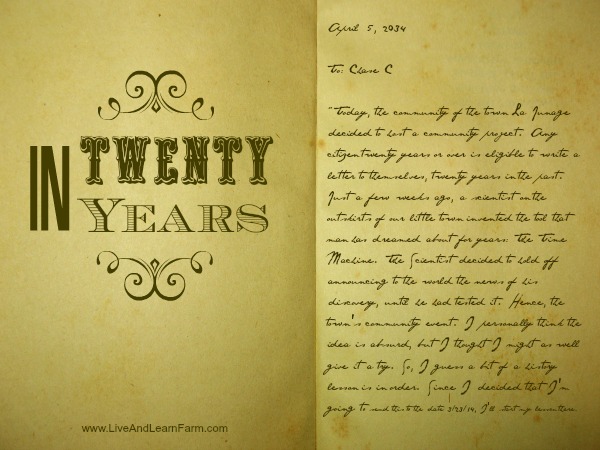 IN TWENTY
YEARS
www.LiveAndLearnFarm.com
April 5, 2034
To: Chase C
"Today, the community of the town La Junage
decided to host a community project. Any
citizen twenty years or over is eligible to write a
letter to themselves, twenty years in the past.
Just a few weeks ago, a scientist on the
outskirts of our little town invented the tool that
man has dreamed about for years: The Time
Machine. The Scientist decided to hold off
announcing to the world the news of his
discovery, until he had tested it. Hence, the
town's community event. I personally think the
idea is absurd, but I thought I might as well
give it a try. So, I guess a bit of a history
lesson is in order. Since I decided that I'm
going to send this to the date 3/23/14, I'll start my lesson there.